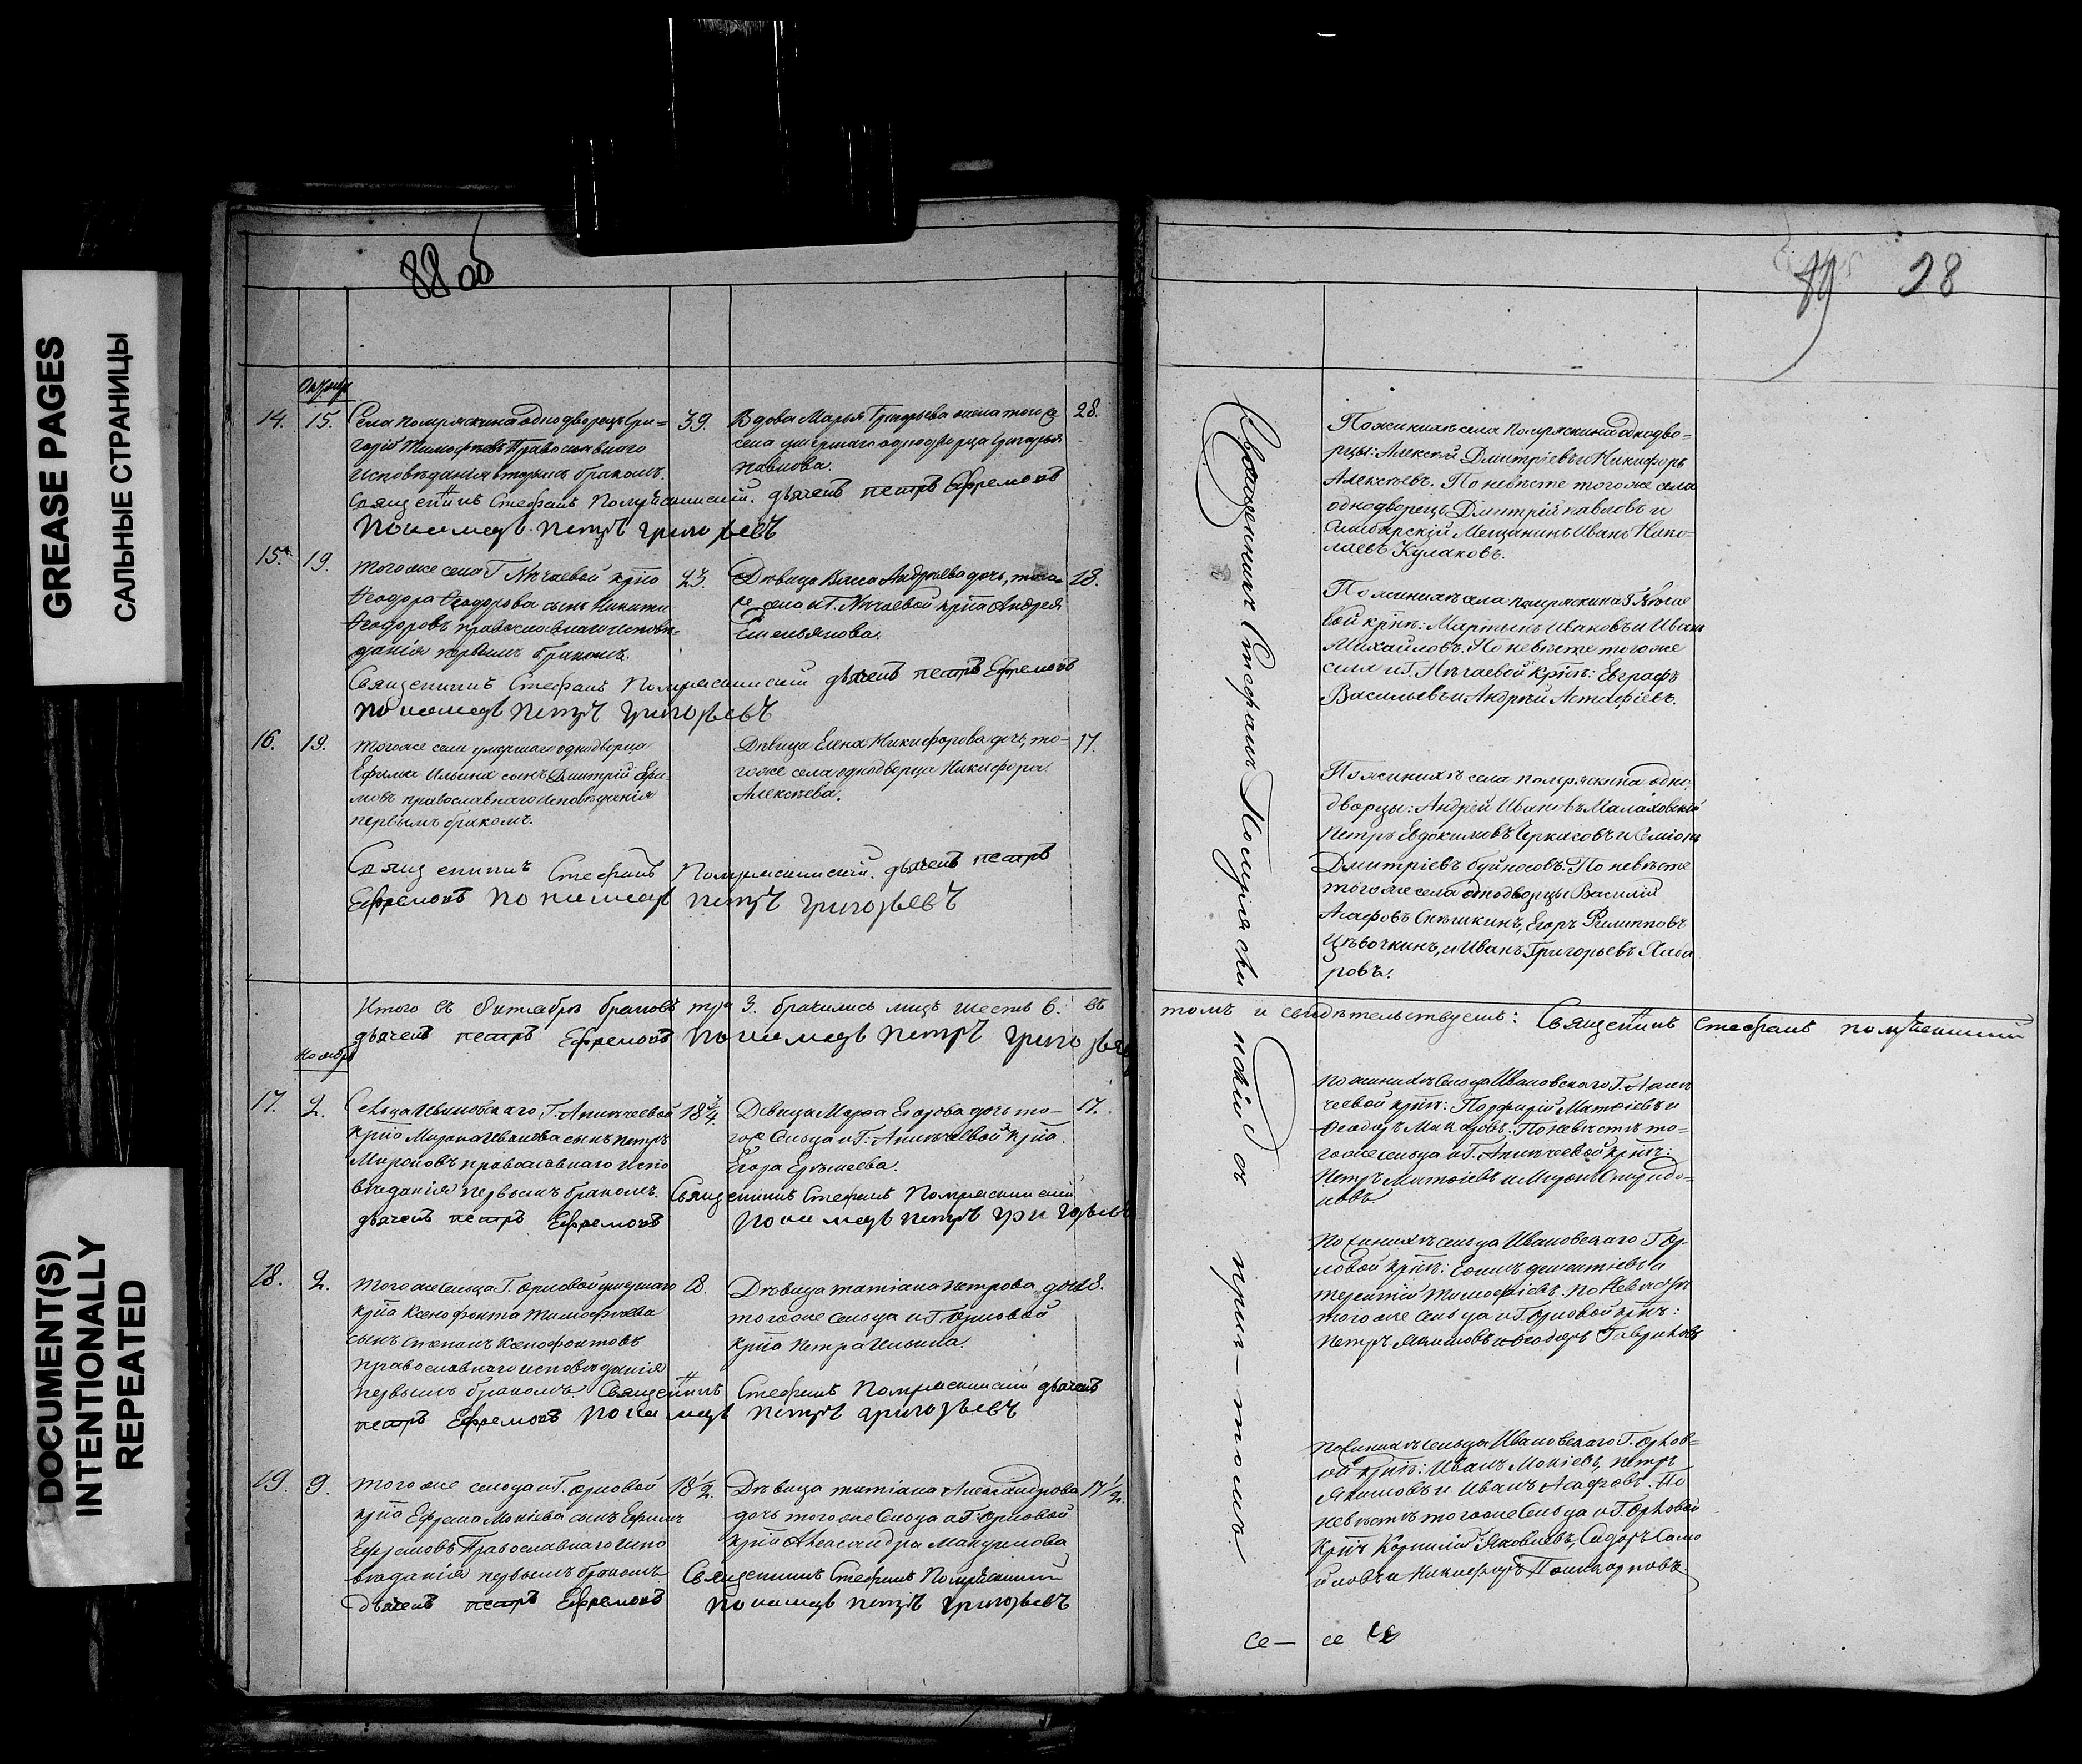 GREASE PAGES
САЛЬНЫЕ СТРАНИЦЫ
DOCUMENT(S)
INTENTIONALLY
REPEATED
88 об
Октябрь
14. 15. Села Помряскина однодворецъ Гри=
горій Тимофѣевъ Православнаго
исповѣданія вторымъ бракомъ.
39.
Вдова Марья Григорьева жена того же
села умершаго однодворца Григорья
Павлова.
28.
Священникъ Стефанъ Помряскинскій. дьячекъ петръ Ефремовъ
Пономарь Петръ Григорьевъ
15. 19. Того же села Г. Нѣчаевой крна
Ѳеодора Ѳеодорова сынъ Никита
Ѳеодоровъ православнаго исповѣ-
данія первымъ бракомъ.
23.
Дѣвица Васса Андреева дочь, того
же села и Г. Нѣчаевой крна Андрея
Емельянова.
18.
Священникъ Стефанъ Помряскинскій дьячекъ петръ Ефремовъ
пономарь петръ григорьевъ
16. 19. Того же села умершаго однодворца
Ефима Ильина сынъ Дмитрій Ефи-
мовъ православнаго исповѣданія
первымъ бракомъ.
Дѣвица Елена Никифорова дочь, то-
гоже села однодворца Никифора
Алексѣева.
17.
Священникъ Стефанъ Помряскинскій. дьячекъ петръ
Ефремовъ пономарь петръ григорьевъ
Итого въ Октябрѣ браковъ три 3. брачились лицъ шесть 6. въ
дьячекъ петръ Ефремовъ пономарь петръ григорьевъ
Ноябрь
17. 2. Сельца Ивановскаго, Г. Аничевой
крна Мирона Иванова сынъ петръ
Мироновъ православнаго испо
вѣданія первымъ бракомъ.
18
Дѣвица Марѳа Егорова дочь то-
гоже сельца и Г. Аничевой крна.
Егора Еремеева.
17.
Священникъ Стефанъ Помряскинскій
дьячекъ петръ Ефремовъ пономарь петръ григорьевъ
18. 2. Того же сельца Г. Орловой умершаго
крна Ксенофонта Тимофѣева
сынъ Степанъ Ксенофонтовъ
православнаго исповѣданія
первымъ бракомъ.
18.
Дѣвица татіана петрова дочь
того же сельца и Г. Орловой
крна Петра Ильина.
18.
Священникъ Стефанъ Помряскинскій дьячекъ
петръ Ефремовъ пономарь петръ григорьевъ
19. 9. Того же сельца и Г. Орловой
крна Ефрема Мокіева сынъ Ефимъ
Ефремовъ Православнаго испо
вѣданія первымъ бракомъ
18 1/2.
Дѣвица татіана Александрова
дочь того же сельца и Г. Орловой
крна Александра
17 1/2.
Священникъ Стефанъ Помряскинскій
Дьячекъ петръ Ефремовъ пономарь петръ григорьевъ
89 98
Священникъ Стефанъ Помряскинскій въ при-томъ
По женихѣ села Помряскина однодво=
рцы: Алексѣй Дмитріевъ и Никифоръ
Алексѣевъ. По невѣсте того же села
однодворецъ Дмитрій павловъ и
Симбирскій Мещанинъ Иванъ Нико-
лаевъ Кулаковъ.
По женихѣ села помряскина Г. Нѣчае
вой крне: Мартынъ Ивановъ и Иванъ
Михайловъ. По невѣсте того же
села и Г. Нѣчаевой крне: Евграфъ
Васильевъ и Андрей Астафіевъ.
По женихѣ села помряскина одно-
дворцы: Андрей Ивановъ Малаховскій
петръ Евдокимовъ Черкасовъ и Семіонъ
Дмитріевъ буйносовъ. По невѣсте
того же села однодворцы Василій
Агафовъ Спѣшкинъ, Егоръ Филипповъ
Цѣвочкинъ, и Иванъ Григорьевъ Хаба
ровъ.
томъ и свидѣтельствуетъ: Священникъ Стефанъ помряскинскій
По женихѣ сельца Ивановскаго Г. Ани
чевой крне: Порфирій Матѳіевъ и
Ѳеодоръ Макаровъ. По невѣстѣ то-
гоже сельца и Г. Аничевой крне:
петръ Матѳіевъ и Миронъ Спиридо=
новъ.
По женихѣ сельца Ивановскаго Г. Ор-
ловой крне: Ефимъ дементіевъ и
терентій Тимофѣевъ. По невѣстѣ
того же сельца и Г. Орловой крне:
петръ Якимовъ и Ѳеодоръ Гавриловъ
По женихѣ сельца Ивановскаго Г. Орлов=
ой крне: Иванъ Мокіевъ, петръ
Якимовъ и Иванъ Агафовъ. По
невѣстѣ того же сельца и Г. Орловой
крне Корнилій Яковлевъ, Сидоръ Само
йловъ и Никифоръ Поликарповъ.
се— се се